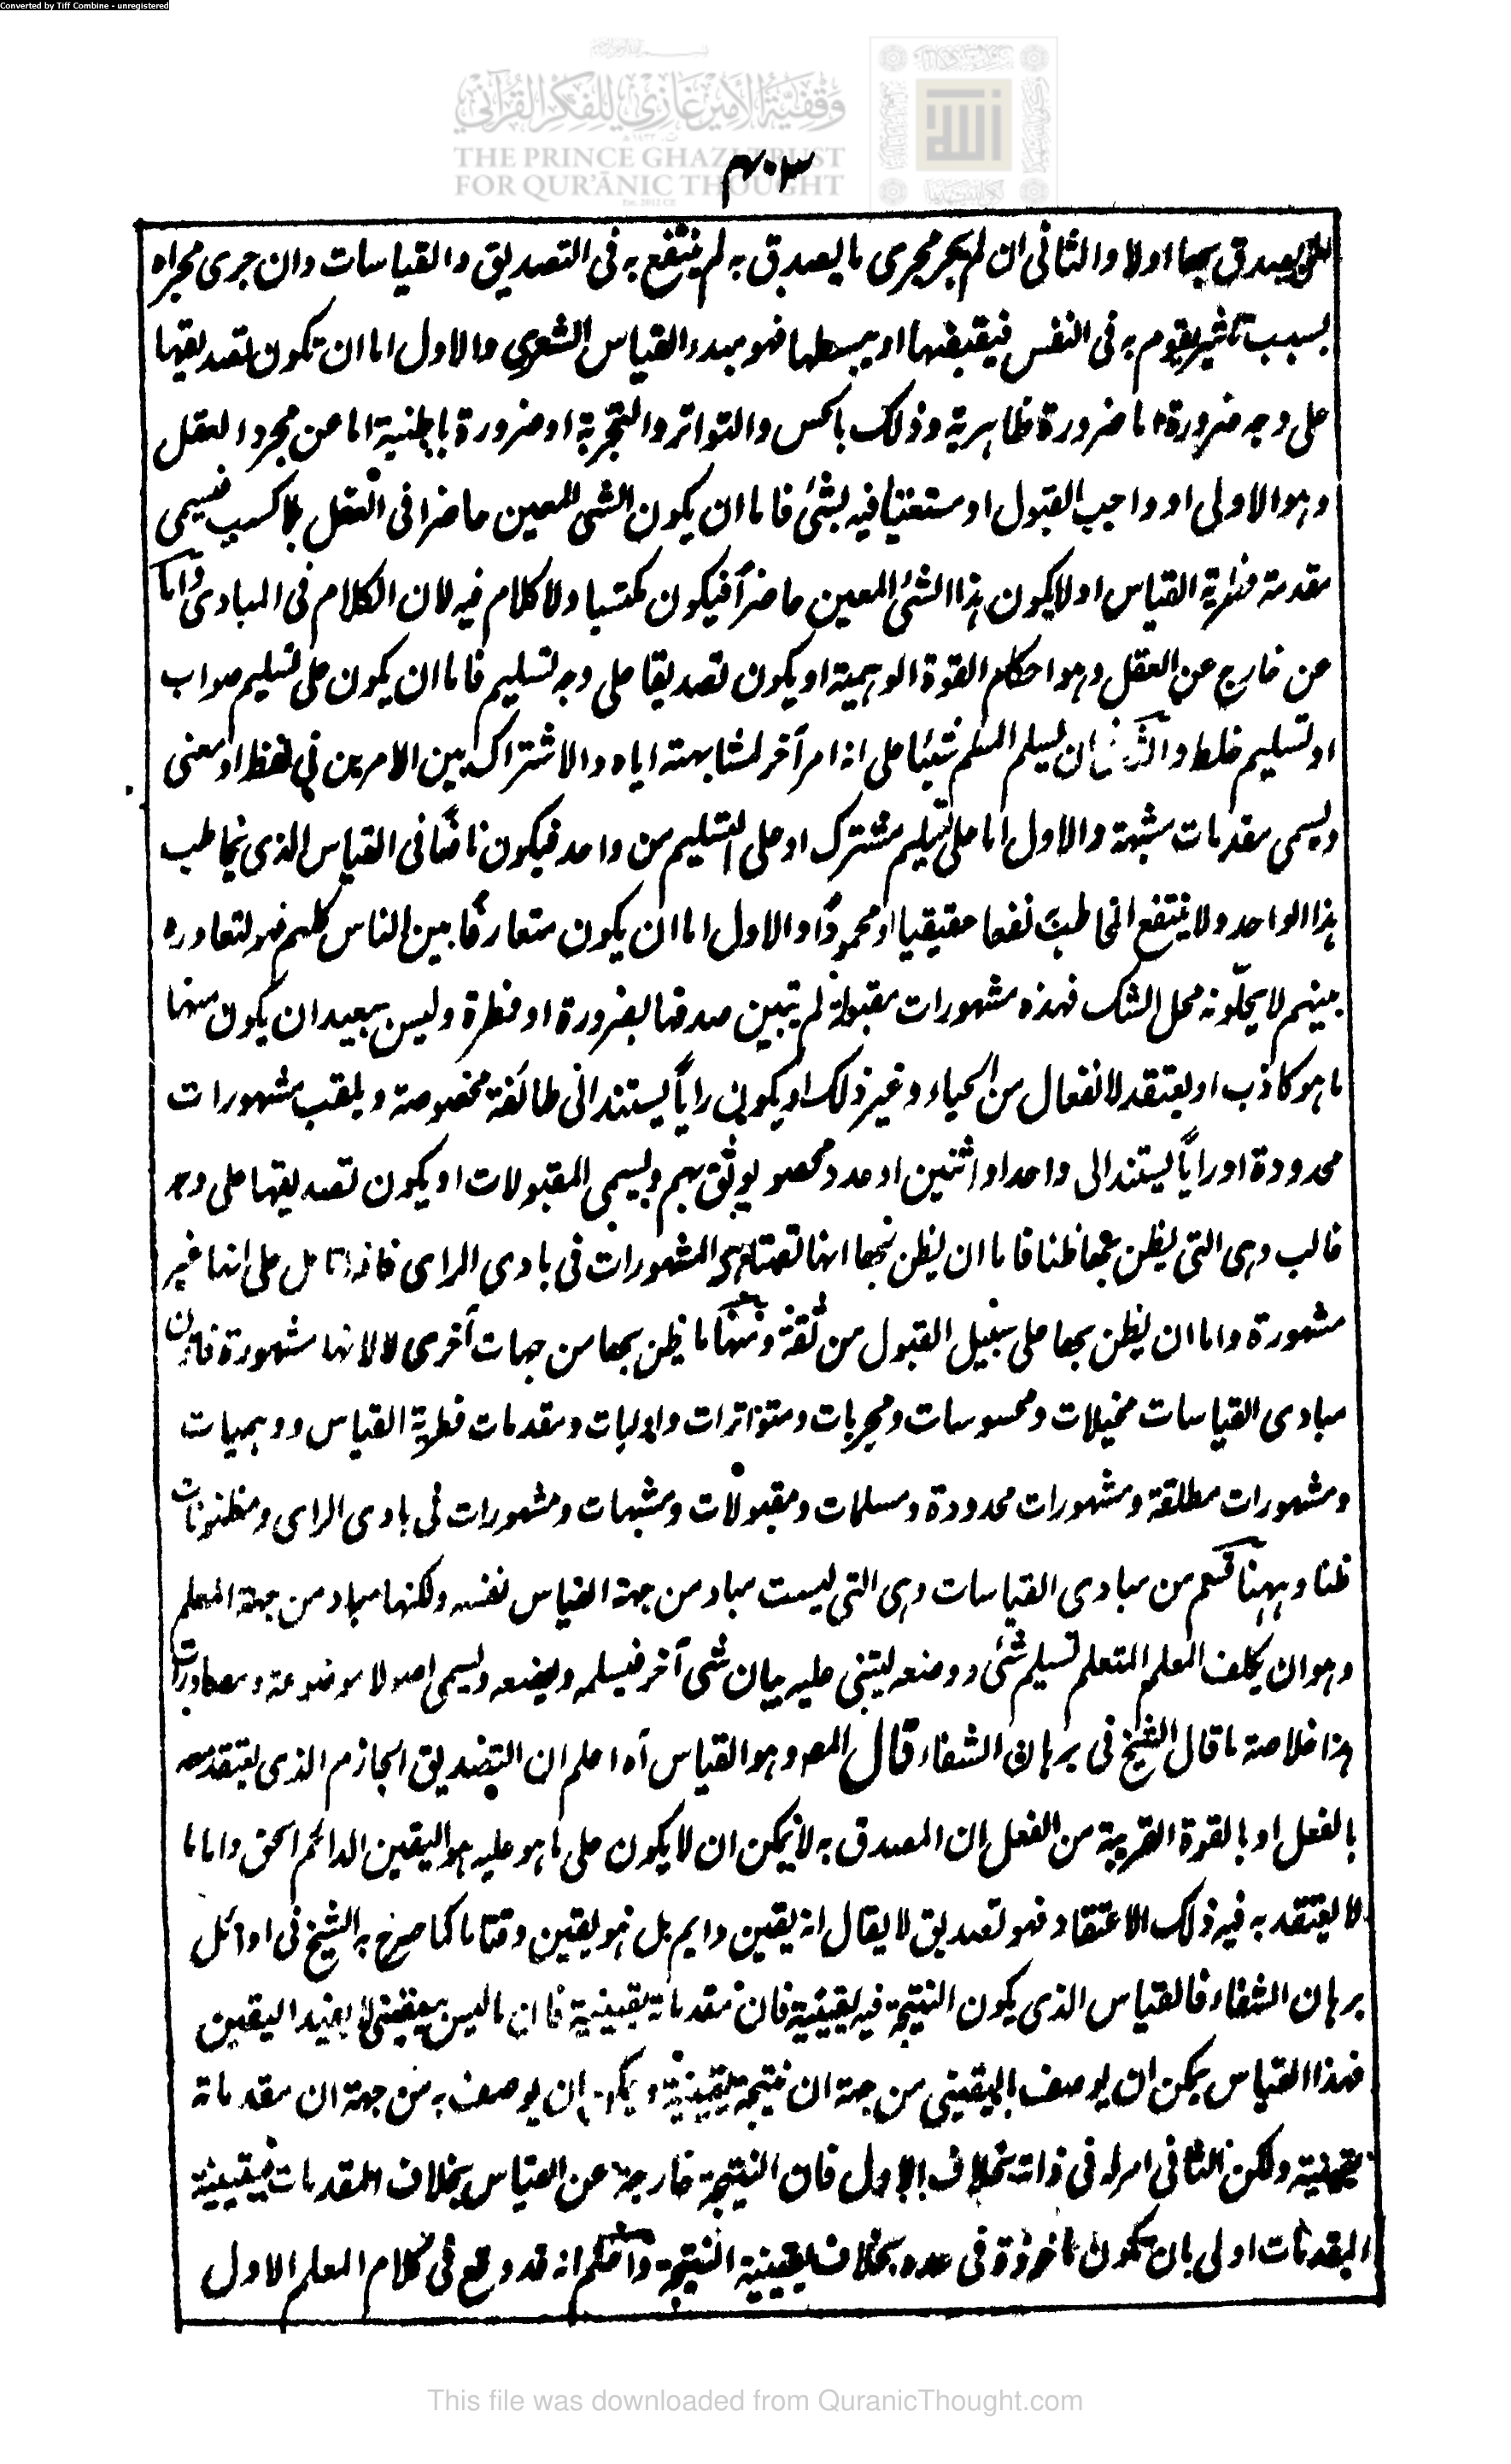 Converted by Tiff Combine - unregistered
وقفية الأمير غازي للفكر القرآني
THE PRINCE GHAZI TRUST
FOR QUR'ĀNIC THOUGHT
٤٠٣
يصدق بها اولا والثانى ان لم يجر مجرى ما يصدق به لم ينتفع به فى التصديق والقياسات وان جرى مجراه
بسبب تاثير يقوم به فى النفس فيقبضها او يبسطها فهو مبدء القياس الشعرى والاول اما ان تكون تصديقها
على وجه ضرورة اما ضرورة ظاهرية وذلك بالحس والتواتر والتجربة او ضرورة باطنية اما من مجرد العقل
وهو الاولى او واجب القبول او مستغنيا فيه بشئ فاما ان يكون الشئ المعين حاضرا فى العقل بلا كسب فيسمى
مقدمة فطرية القياس او لا يكون هذا الشئ المعين حاضرا فيكون مكتسبا ولا كلام فيه لان الكلام فى المبادى واما
عن خارج عن العقل وهو احكام القوة الوهمية او يكون تصديقا على وجه تسليم فاما ان يكون على تسليم صواب
او تسليم غلط ان يسلم المسلم شيئا على انه امر آخر لمشابهته اياه والاشتراك بين الامرين فى لفظ او معنى
ويسمى مقدمات مشبهة والاول اما على تسليم مشترك او على التسليم من واحد فيكون نافعا فى القياس الذى يخاطب
هذا الواحد ولا ينتفع المخاطب نفعا حقيقيا او محمودا والاول اما ان يكون متعارفا بين الناس كلهم فهو لتعاوره
بينهم لا يحلّونه محل الشك فهذه مشهورات مقبولة لم يتبين صدقها بضرورة او فطرة وليس ببعيد ان يكون منها
ما هو كاذب او يعتقد لانفعال من الحياء وغير ذلك او يكون رايا يستند الى طائفة مخصوصة ويلقب مشهورات
محدودة او رايا يستند الى واحد او اثنين او عدد محصور يوثق بهم ويسمى المقبولات او يكون تصديقها على وجه
غالب وهى التى يظن بها ظنا فاما ان يظن بها انها المشهورات فى بادى الراى فاذا تامل على انها غير
مشهورة واما ان يظن بها على سبيل القبول من ثقة ومنها ما يظن بها من جهات آخرى لا لانها مشهورة فاذن
مبادى القياسات مخيلات ومحسوسات ومجربات ومتواترات واوليات ومقدمات فطرية القياس ووهميات
ومشهورات مطلقة ومشهورات محدودة ومسلمات ومقبولات ومشبهات ومشهورات فى بادى الراى ومظنونات
ظنا وههنا قسم من مبادى القياسات وهى التى ليست مباد من جهة القياس نفسه ولكنها مباد من جهة المعلم
وهو ان يكلف المعلم المتعلم تسليم شئ ووضعه ليبتنى عليه بيان شئ آخر فيسلمه ويضعه ويسمى اصولا موضوعة ومصادرات
هذا خلاصة ما قال الشيخ فى برهان الشفاء قال المص وهو القياس آه اعلم ان التصديق الجازم الذى يعتقد معه
بالفعل او بالقوة القريبة من الفعل ان المصدق به لا يمكن ان لا يكون على ما هو عليه هو اليقين الدائم الحق واما ما
لا يعتقد به فيه ذلك الاعتقاد فهو تصديق لا يقال انه يقين دايم بل هو يقين وقتا ما كما صرح به الشيخ فى اوائل
برهان الشفاء فالقياس الذى يكون النتيجة فيه يقينية فان مقدماته يقينية فان ما ليس بيقينى لا يفيد اليقين
فهذا القياس يمكن ان يوصف باليقينى من جهة ان نتيجته يقينية ويمكن ان يوصف به من جهة ان مقدماته
يقينية ولكن الثانى امر له فى ذاته بخلاف الاول فان النتيجة خارجة عن القياس بخلاف المقدمات فيقينية
المقدمات اولى بان تكون ماخوذة فى حده بخلاف يقينية النتيجة واعلم انه قد وقع فى كلام المعلم الاول
This file was downloaded from QuranicThought.com